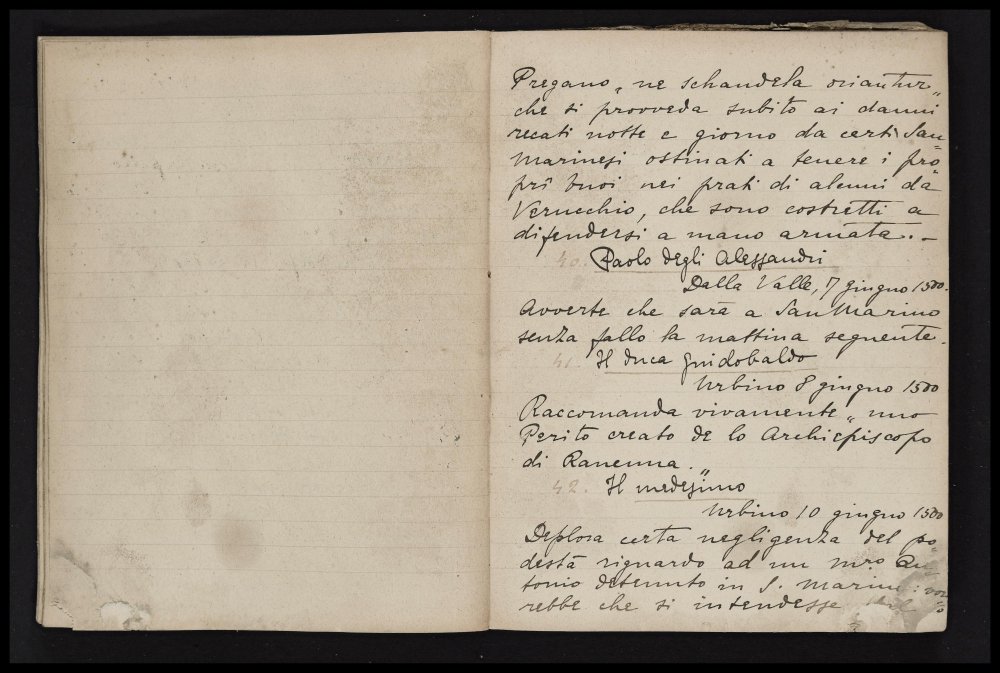 Pregano „ ne schandela oriantur „
che si provveda subito ai danni
recati notte e giorno da certi San
Marinesi ostinati a tenere i pro
prî buoi nei prati di alcuni da
Verucchio, che sono costretti a
difendersi a mano armata. –
40. Paolo degli Alessandri
Dalla Valle, 7 giugno 1500.
Avverte che sarà a San Marino
senza fallo la mattina seguente.
41. Il duca Guidobaldo
Urbino 8 giugno 1500
Raccomanda vivamente „ uno
Perito creato de lo Archiepiscopo
di Ravenna. „
42. Il medesimo
Urbino 10 giugno 1500
Deplora certa negligenza del po
destà riguardo ad un mro An
tonio detenuto in S. Marino: vor
rebbe che si intendesse